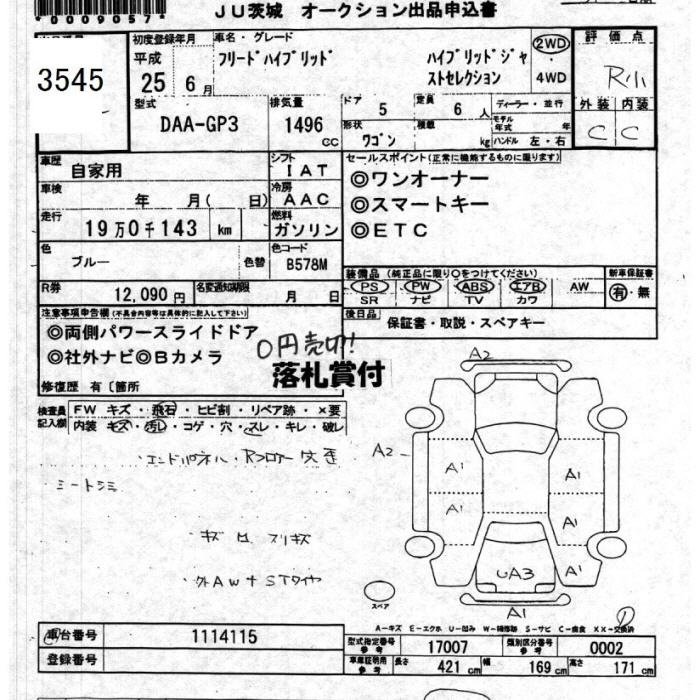 *0009057*
JU茨城 オークション出品申込書
3545
初度登録年月
平成
25 6月
車名・グレード
フリードハイブリッド
ハイブリッドジャストセレクション
2WD
4WD
評価点
R小
外装 内装
C C
型式
DAA-GP3
排気量
1496
cc
ドア
5
定員
6人
ディーラー・並行
モデル年式 年
形状
ワゴン
積載
kg
ハンドル 左・右
車歴
自家用
シフト
IAT
車検
年 月( 日)
冷房
AAC
走行
19万0千143 km
燃料
ガソリン
色
ブルー
色替
色コード
B578M
R券
12,090円
名変通知期限
月 日
セールスポイント(正常に機能するものに限ります)
◎ワンオーナー
◎スマートキー
◎ETC
装備品(純正品に限り○をつけてください)
PS PW ABS エアB AW
SR ナビ TV カワ
新車保証書
有・無
後日品
保証書・取説・スペアキー
注意事項申告欄(不具合内容等は具体的に記入して下さい)
◎両側パワースライドドア
◎社外ナビ◎Bカメラ
0円売切!!
落札賞付
修復歴 有〔箇所
検査員記入欄
FW キズ・飛石・ヒビ割・リペア跡・×要
内装 キズ・汚レ・コゲ・穴・スレ・キレ・破レ
エンドパネル・Rフロアー 歪
シートシミ
キズ 凹 スリキズ
外AW+STタイヤ
A2
A2
A1
A1
A1
A1
A1
UA3
A1
スペア
A-キズ E-エクボ U-凹み W-補修跡 S-サビ C-腐食 XX-交換済
車台番号
1114115
登録番号
型式指定番号
参考
17007
類別区分番号
参考
0002
車庫証明用
参考
長さ
421 cm
幅
169 cm
高さ
171 cm